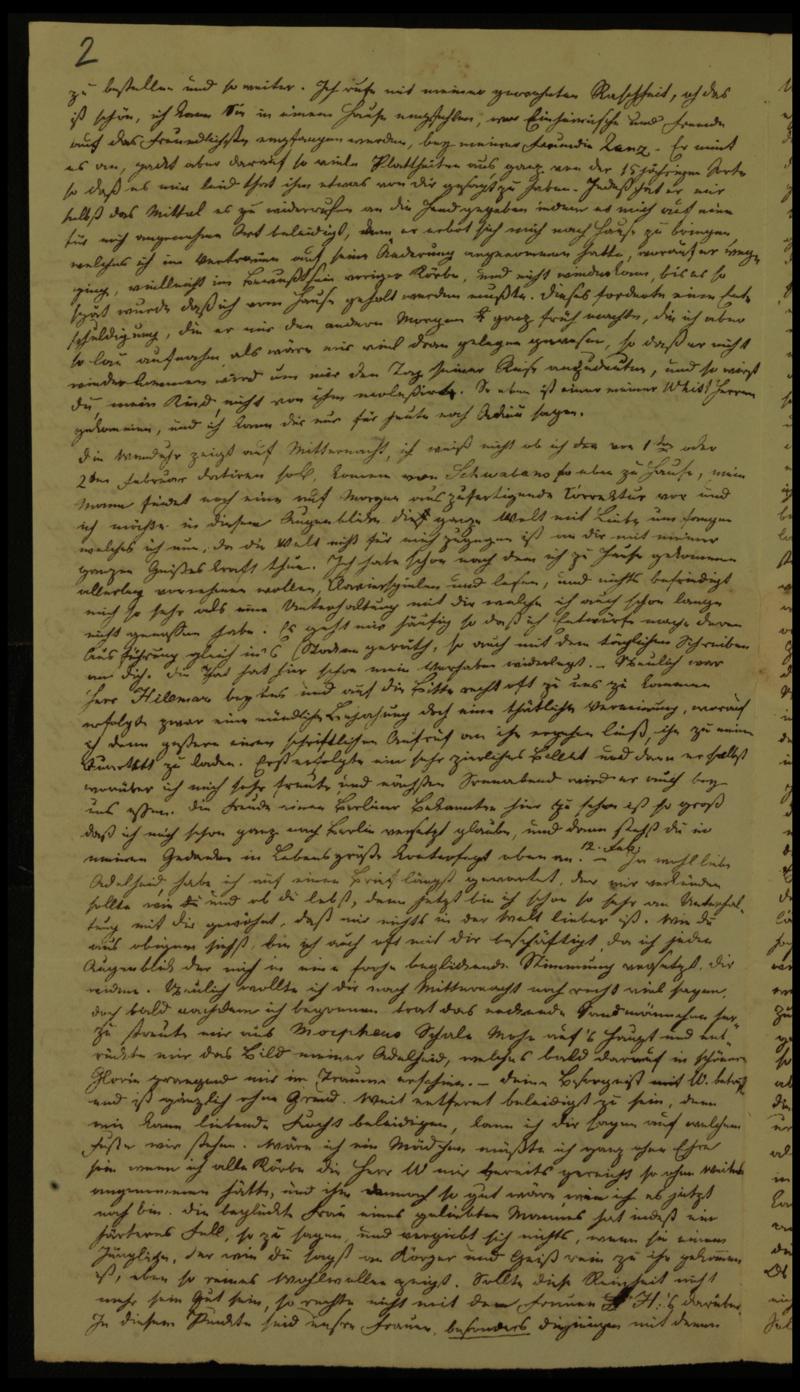 2
zu bestellen und so weiter. Ich rufe mit meiner gewohnten Raschheit, ach das
ist schön, ich kann Sie in einem Hause empfehlen, wo Einheimische und Fremde
auf das Freundlichste empfangen werden, bey meiner Freundin Lanz. Er nimt
es an, packt aber darauf so viele Plattheiten aus, ganz von der 15jährigen Sorte
so daß es mir leid that ihm etwas von dir gesagt zu haben. Indeß hat er mir
selbst das Mittel es zu widerrufen an die Hand gegeben indem er mich auf eine
für mich angenehme Art beleidigt, denn er erbot sich mich nach Hause zu bringen
welches ich im Vertrauen auf seine Aenderung angenommen hatte, worauf er weg
ging, vielleicht im Bewußtsein voriger Körbe, und nicht wiederkam, bis es so
spät wurde daß ich vom Hause geholt werden mußte. Dieses forderte eine Ent
schuldigung, die er mir den andern Morgen ganz früh machte, die ich aber
so lau aufnahm, als wäre mir viel dran gelegen gewesen, so daß er nicht
wiederkommen wird um mir den Tag seiner Reise anzudeuten, und so wirst
du, mein Kind, nicht von ihm molestirt. So eben ist einer meiner Whist Herren
gekommen, und ich kann dir nur für heute noch Adieu sagen.
Die Wanduhr zeigt auf Mitternacht, ich weiß nicht ob ich den 1ten oder
2ten Februar datiren soll, komme von Schwabens so eben zu Hause, mein
Mann findet noch eine auf Morgen auszufertigende Correktur vor und
ich möchte in diesem Augenblicke die ganze Welt mit Liebe umfangen
welches ich nun, da die Welt nicht für mich zugegen ist an dir mit meiner
ganzen Geisteskraft thue. Ich habe schon nach dem ich zu Hause gekommen
allerley vornehmen wollen, Clavierspielen und lesen, und nichts befriedigt
mich so sehr als eine Unterhaltung mit dir welche ich auch schon lange
nicht genossen habe. Es geht mir häufig so daß ich Entwürfe mache deren
Ausführung gleich in's Stocken geräth, so auch mit dem täglichen Schreiben
an dich. Die That hat hier schon mein Vorhaben widerlegt. – Neulich war
Herr Hillmar bey uns und auf die Bitte recht oft zu uns zu kommen
erfolgte zwar eine mündliche Bejahung doch eine thätliche Verneinung, worauf
ich denn gestern einen schriftlichen Aufruf an ihn ergehen ließ, ihn zu einem
Quartett zu laden. Erst erfolgte ein sehr zierliches Billet und dann er selbst
worüber ich mich sehr freute und nächsten Sonnabend wird er auch bey
uns essen. Die Freude einen Berliner Bekannten hier zu sehen ist so groß
daß ich mich schon ganz nach Berlin versetzt glaube, und dann stehst du in
meinen Gedanken in Lebensgröße konterfeyt oben an. – 12. Feb: Ja wohl liebe
Adelheid, habe ich auf einen Brief längst gewartet, der mir verkünden
sollte wie und ob du lebst, denn jetzt bin ich schon so sehr an Unterhal-
tung mit dir gewöhnt, daß mir nichts in der Welt lieber ist. Wie du
aus obigem siehst, bin ich auch oft mit dir beschäftigt, da ich jeden
Augenblick der mich in eine frohe beglückende Stimmung versetzt, dir
widme. Neulich wollte ich dir nach Mitternacht noch recht viel sagen,
doch bald nachdem ich begonnen trat das neckende Sandmännchen her-
zu streute mir aus Morpheus Schale Mohn auf's Haupt und ent-
rückte mir das Bild meiner Adelheid, welches bald darauf in schönerer
Glorie prangend mir im Traume erschien. – Deine Besorgniß mit W. betref
end ist gänzlich ohne Grund. Weit entfernt beleidigt zu sein, denn
wie kann liebende Furcht beleidigen, kann ich dir sagen auf welchem
Fuße wir stehen. Wäre ich ein Mädchen müßte ich ganz ohne Ehre
sein wenn ich alle Körbe die Herr W mir bereits gereicht so ohne weiteres
angenommen hätte, und ihm dennoch so gut wäre wie ich es jetzt
noch bin. Die beglückte Frau eines geliebten Mannes hat indeß ein
härteres Fell, so zu sagen, und vergiebt sich nichts, wenn sie einem
Jüngling, der wie du sagst an Körper und Geist rein zu ihr gekommen
ist, eben so reines Wohlwollen zeigt. Sollte diese Reinheit nicht
mehr sein Gut sein, so rechte nicht mit dem Freunde H:'s darüber.
In diesem Punkte sind unsre Frauen, besonders diejenigen mit denen